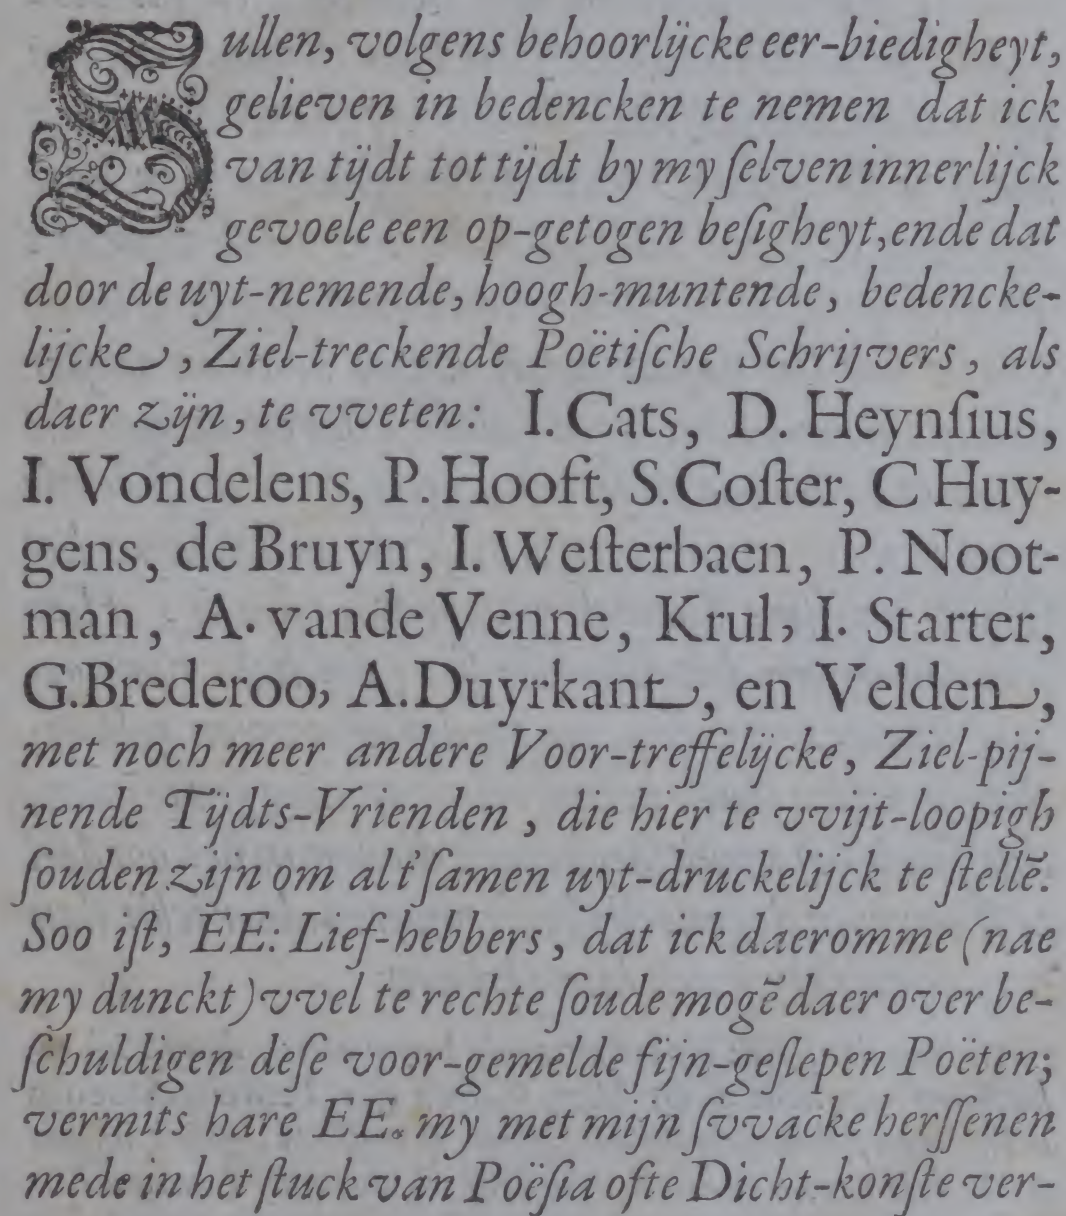 Sullen, volgens behoorlijcke eer-biedigheyt,
gelieven in bedencken te nemen dat ick
van tijdt tot tijdt by my ſelven innerlijck
gevoele een op-getogen beſigheyt, ende dat
door de uyt-nemende, hoogh-muntende, bedencke-
lijcke, Ziel-treckende Poëtiſche Schrijvers, als
daer zijn, te vveten: I. Cats, D. Heynſius,
I. Vondelens, P. Hooft, S. Coſter, C Huy-
gens, de Bruyn, I. Weſterbaen, P. Noot-
man, A. vande Venne, Krul, I. Starter,
G. Brederoo, A. Duyrkant, en Velden,
met noch meer andere Voor-treffelijcke, Ziel-pij-
nende Tijdts-Vrienden, die hier te vvijt-loopigh
ſouden zijn om al t'ſamen uyt-druckelijck te ſtellē.
Soo iſt, EE: Lief-hebbers, dat ick daeromme (nae
my dunckt) vvel te rechte ſoude mogē daer over be-
ſchuldigen deſe voor-gemelde fijn-geſlepen Poëten;
vermits hare EE. my met mijn ſvvacke herſſenen
mede in het ſtuck van Poëſia ofte Dicht-konſte ver-